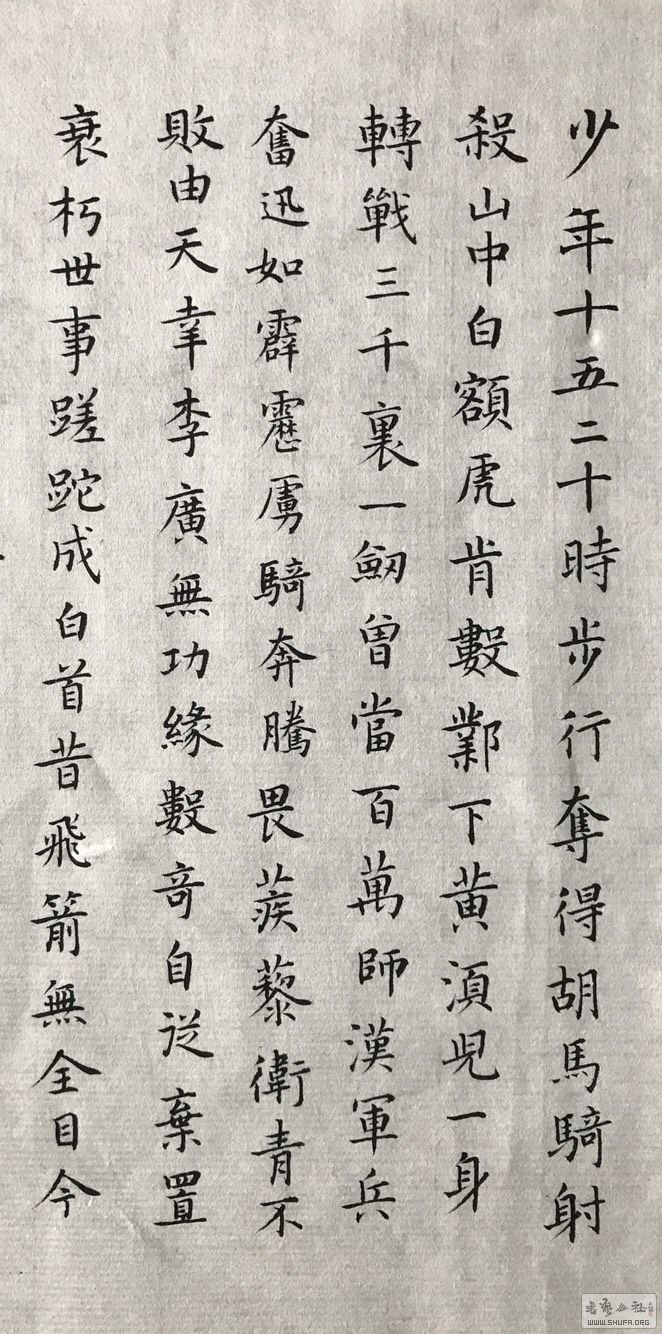 少年十五二十時步行奪得胡馬騎射
殺山中白額虎肯數鄴下黄須兒一身
轉戰三千裏一劒曾當百萬師漢軍兵
奮迅如霹靂虜騎奔騰畏蒺藜衛青不
敗由天幸李廣無功緣數奇自從棄置
衰朽世事蹉跎成白首昔飛箭無全目今
书艺公社
WWW.SHUFA.ORG